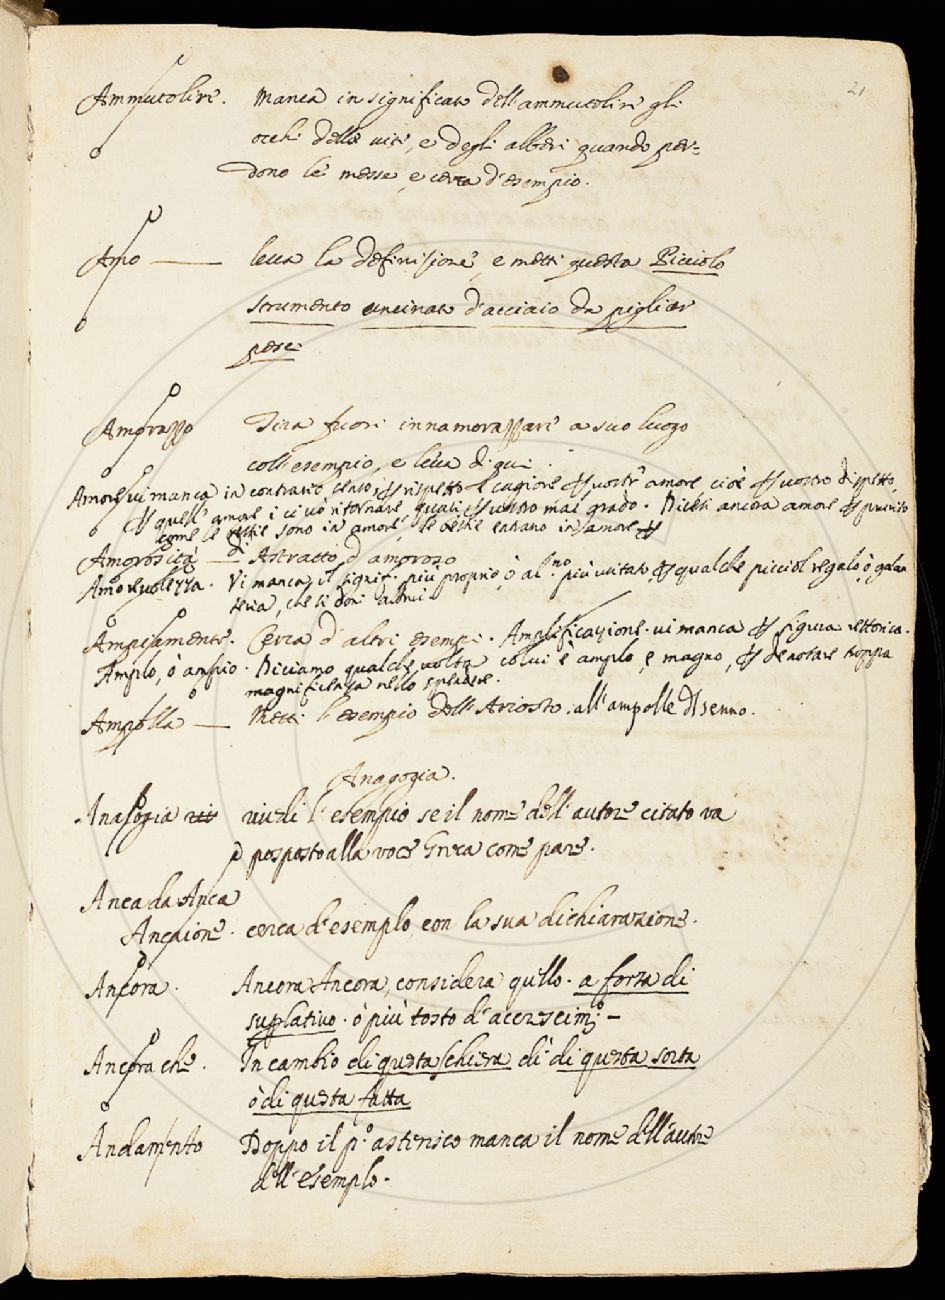 21
Ammutolire. Manca in significato dell'ammutolire gli
occhi delle viti, e degli alberi quando per=
dono le messe, e cerca d'esempio.
Amo — leva la definizione, e metti questa Picciolo
strumento uncinato d'acciaio da pigliar
pesci
Amorazzo Tira fuori innamorazzare a suo luogo
coll'esempio, e leva di qui.
Amore vi manca in contrario senso, rispetto e cagione vostr'amore cioè vostro dispetto,
quell'amore i ci vò ritornare, vostro mal grado. Dicesi ancora amore prurito
come le bestie sono in amore, le bestie entrano in amore
Amorosità — Astratto d'amoroso
Amorevolezza. Vi manca il signif. più proprio, ò al.no più usitato, qualche picciol regalo, ò galan
teria, che si doni altrui.
Ampiamente. Cerca d'altri esempi. Amplificazione. vi manca figura rettorica.
Amplo, o ampio. Diciamo qualche volta colui è amplo, e magno, denotare troppa
magnificenza nello spendere.
Ampolla — Metti l'esempio dell'Ariosto. all'ampolle senno.
Anagogia.
Analogia vedi l'esempio se il nome dell'autore citato va
posposto alla voce Greca come pare.
Anca da Anca
Ancaione. cerca d'esemplo, con la sua dichiarazione.
Ancora. Ancora Ancora, considera quello. a forza di
suplativo. ò più tosto d'accrescim.o –
Ancora che. In cambio di questa schiera dì di questa sorta
ò di questa fatta
Andamento Doppo il p.o asterisco manca il nome dell'autore
dell'esemplo.